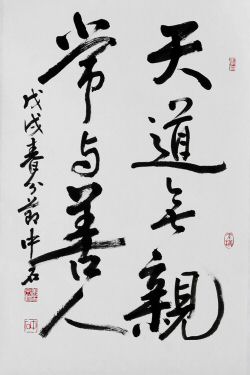 天道無親
常与善人
戊戌春分前中石